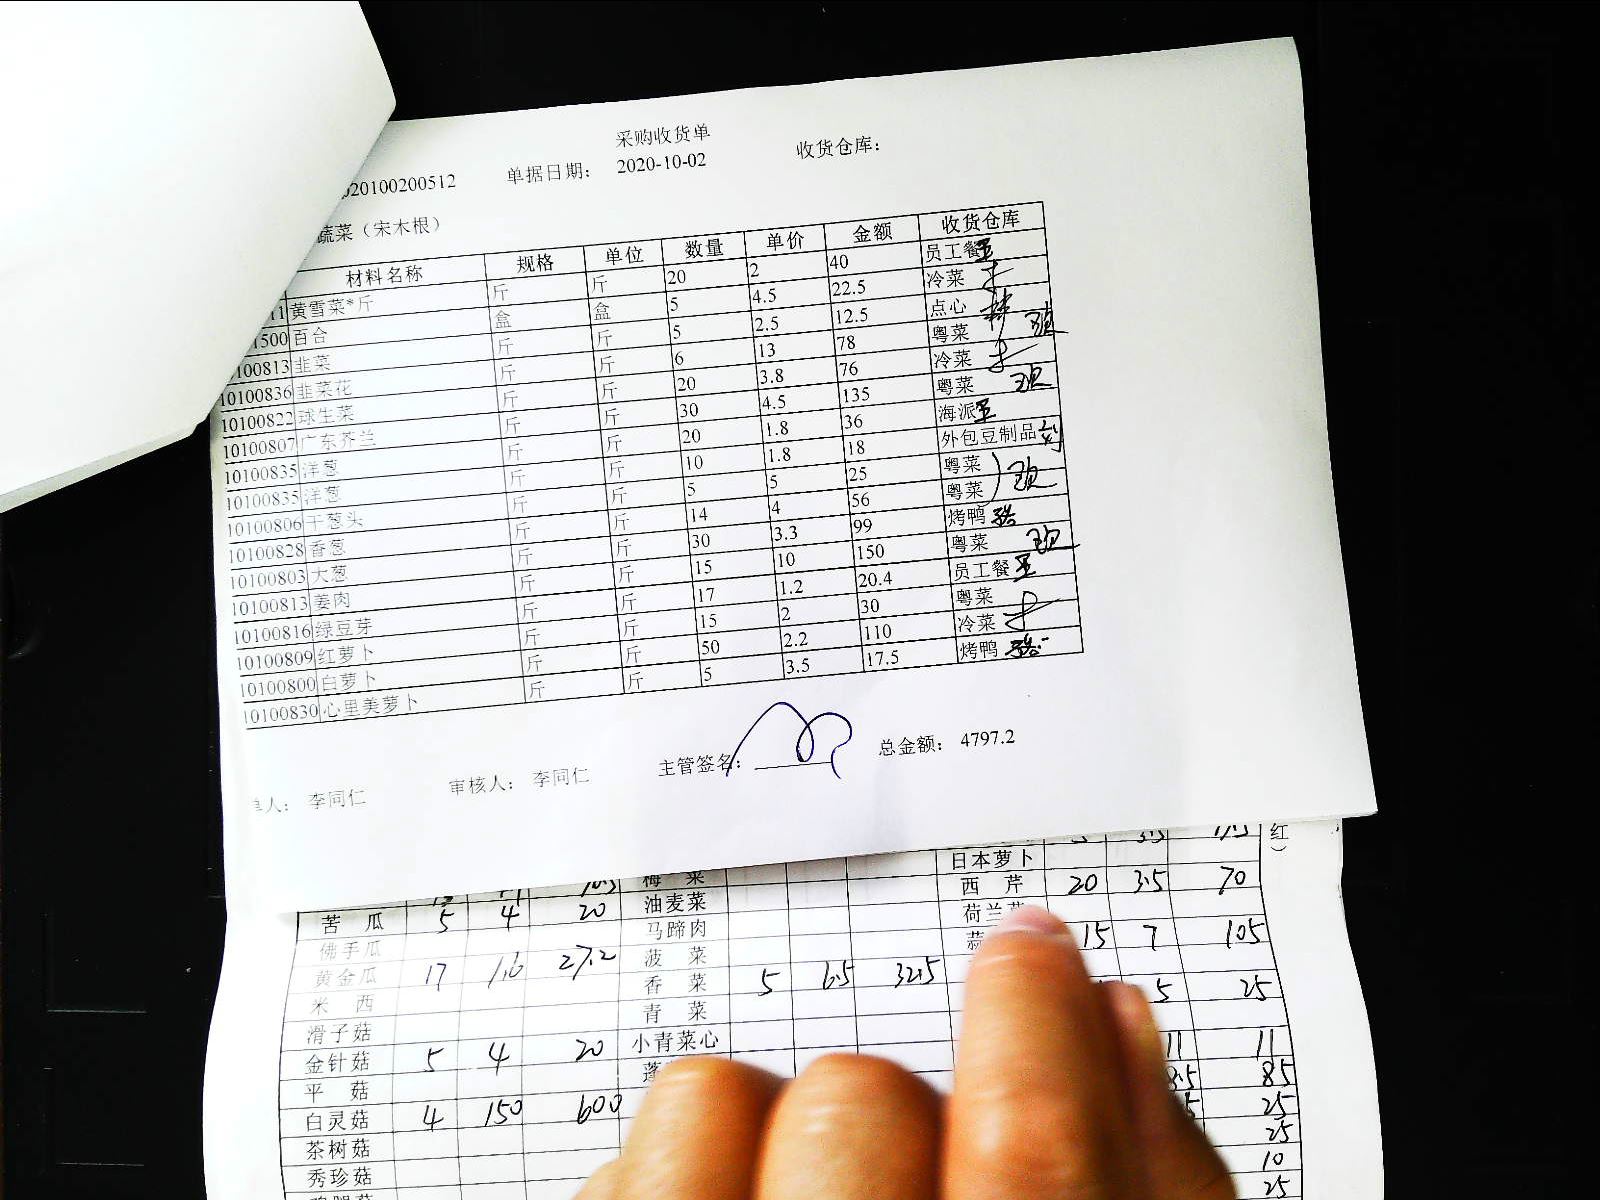 采购收货单
020100200512 单据日期: 2020-10-02 收货仓库:
蔬菜（宋木根）
材料名称 规格 单位 数量 单价 金额 收货仓库
11 黄雪菜*斤 斤 斤 20 2 40 员工餐
1500 百合 盒 盒 5 4.5 22.5 冷菜
100813 韭菜 斤 斤 5 2.5 12.5 点心
10100836 韭菜花 斤 斤 6 13 78 粤菜
10100822 球生菜 斤 斤 20 3.8 76 冷菜
10100807 广东芥兰 斤 斤 30 4.5 135 粤菜
10100835 洋葱 斤 斤 20 1.8 36 海派
10100835 洋葱 斤 斤 10 1.8 18 外包豆制品
10100806 干葱头 斤 斤 5 5 25 粤菜
10100828 香葱 斤 斤 14 4 56 粤菜
10100803 大葱 斤 斤 30 3.3 99 烤鸭
10100813 姜肉 斤 斤 15 10 150 粤菜
10100816 绿豆芽 斤 斤 17 1.2 20.4 员工餐
10100809 红萝卜 斤 斤 15 2 30 粤菜
10100800 白萝卜 斤 斤 50 2.2 110 冷菜
10100830 心里美萝卜 斤 斤 5 3.5 17.5 烤鸭
单人: 李同仁 审核人: 李同仁 主管签名: 总金额: 4797.2
梅 菜 3.5 17.5 红）
日本萝卜
苦 瓜 5 4 20 油麦菜 西 芹 20 3.5 70
佛手瓜 马蹄肉 荷兰
黄金瓜 17 1.6 27.2 菠 菜 15 7 105
米 西 香 菜 5 6.5 32.5
滑子菇 青 菜 5 25
金针菇 5 4 20 小青菜心
平 菇 11 11
白灵菇 4 150 600 8.5 85
茶树菇 5 25
秀珍菇 25
10
25